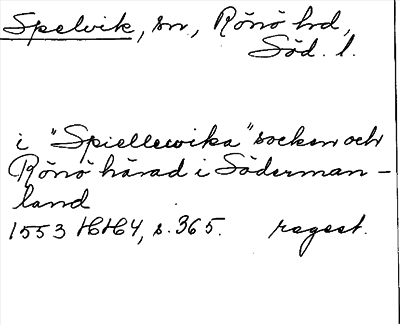 Spelvik, sn, Rönö hrd,
Söd. l.
i "Spiellewika" socken och
Rönö härad i Söderman-
land
1553 HH4, s. 365. regest.